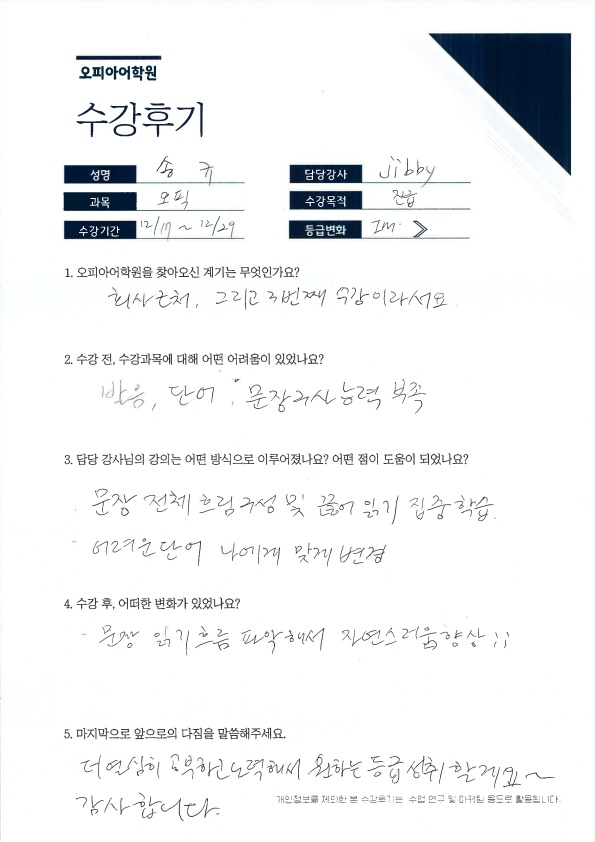 오피아어학원
수강후기
성명 송 규 담당강사 Jibby
과목 오픽 수강목적 진급
수강기간 12/17 ~ 12/29 등급변화 IM.
1. 오피아어학원을 찾아오신 계기는 무엇인가요?
회사근처, 그리고 3번째 수강이라서요.
2. 수강 전, 수강과목에 대해 어떤 어려움이 있었나요?
발음, 단어, 문장구사능력 부족
3. 담당 강사님의 강의는 어떤 방식으로 이루어졌나요? 어떤 점이 도움이 되었나요?
- 문장 전체 흐림구성 및 끊어 읽기 집중 학습.
- 어려운단어 나에게 맞게 변경
4. 수강 후, 어떠한 변화가 있었나요?
- 문장 읽기흐름 파악해서 자연스러움 향상 ;;
5. 마지막으로 앞으로의 다짐을 말씀해주세요.
더열심히 공부하고 노력해서 원하는 등급 성취 할게요~
감사합니다.
개인정보를 제외한 본 수강후기는 수업 연구 및 마케팅 용도로 활용됩니다.